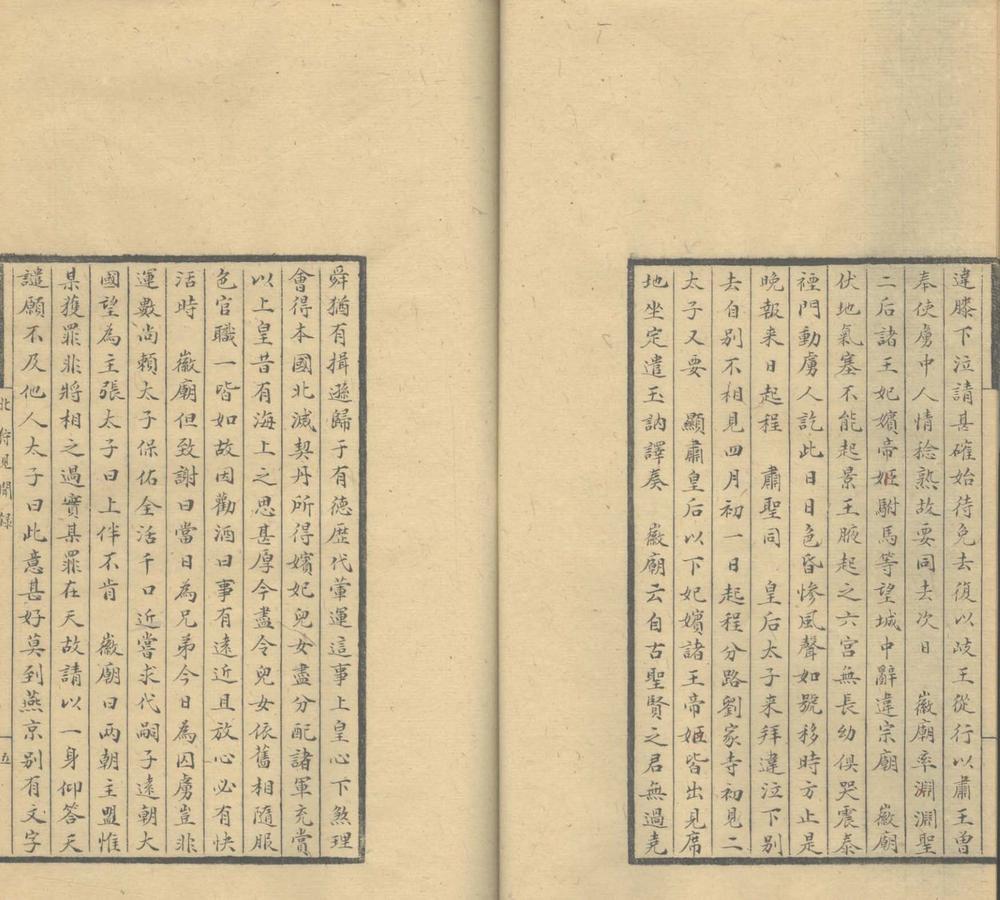 違膝下泣請甚確始待免去復以歧王從行以肅王曾
奉使虜中人情稔熟故要同去次日　徽廟率淵淵聖
二后諸王妃嬪帝姬駙馬等望城中辭違宗廟　徽廟
伏地氣塞不能起景王腋起之六宮無長幼俱哭震泰
禋門動虜人訖此日日色昏慘風聲如號移時方止是
晚報来日起程　肅聖同　皇后太子来拜違泣下別
去自別不相見四月初一日起程分路劉家寺初見二
太子又要　顯肅皇后以下妃嬪諸王帝姬皆出見席
地坐定遣玉訥譯奏　徽廟云自古聖賢之君無過堯
舜猶有揖遜歸于有德歷代革運這事上皇心下煞理
會得本國北滅契丹所得嬪妃兒女盡分配諸軍充賞
以上皇昔有海上之恩甚厚今盡令兒女依舊相隨服
色官職一皆如故因勸酒曰事有遠近且放心必有快
活時　徽廟但致謝曰當日為兄弟今日為囚虜豈非
運數尚賴太子保佑全活千口近嘗求代嗣子遠朝大
國望為主張太子曰上伴不肯　徽廟曰兩朝主盟惟
某獲罪非將相之過實某罪在天故請以一身仰答天
譴願不及他人太子曰此意甚好莫到燕京別有文字
北狩見聞錄
五